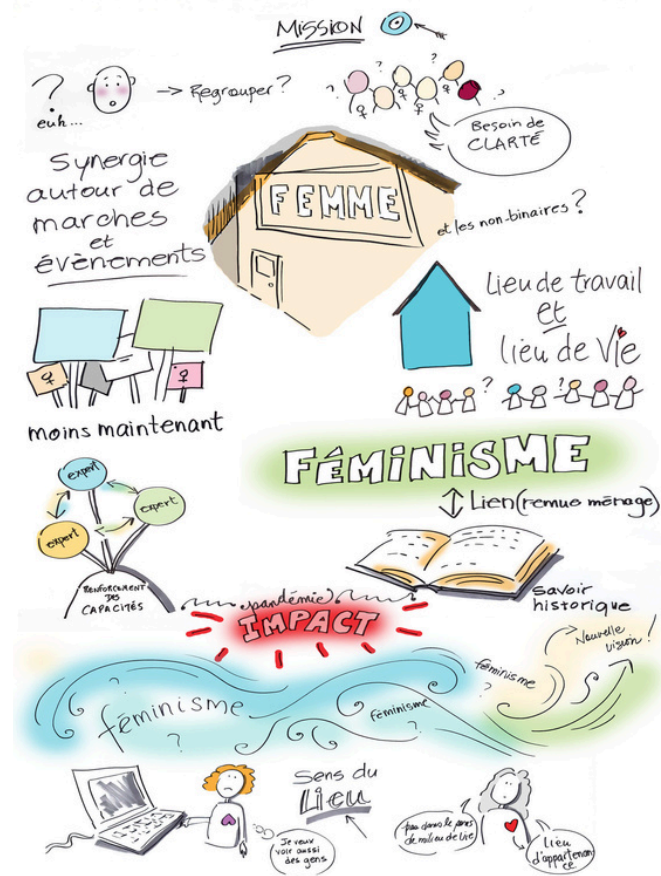 MISSION
?
euh...
→ Regrouper?
? ? ? ?
Besoin de
CLARTÉ
Synergie
autour de
marches
et
évènements
FEMME
et les non-binaires?
Lieu de travail
et
lieu de vie
? ?
moins maintenant
FÉMINISME
Lien (remue ménage)
expert
expert
expert
RENFORCEMENT
DES
CAPACITÉS
savoir
historique
pandémie
IMPACT
Nouvelle
vision!
féminisme
?
?
féminisme
?
féminisme
?
Sens du
Lieu
Je veux
voir aussi
des gens
pas dans le sens
de milieu de vie
Lieu
d'appartenan
ce